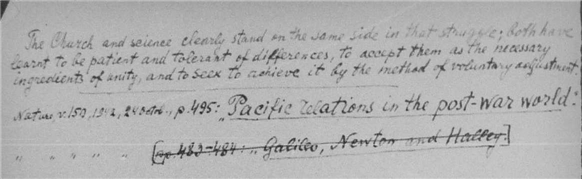 The Church and science clearly stand on the same side in that struggle; both have
learnt to be patient and tolerant of differences, to accept them as the necessary
ingredients of unity, and to seek to achieve it by the method of voluntary adjustment.
Nature, v. 150, 1942, 24 Oct., p. 495: "Pacific relations in the post-war world."
" " " " " [pp. 483-484: "Galileo, Newton and Halley.]